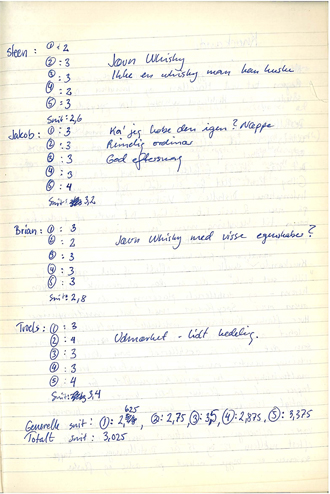 Steen : ① : 2
② : 3 Jævn Whisky
③ : 3 Ikke en whisky man kan huske
④ : 2
⑤ : 3
Snit: 2,6
Jakob : ① : 3 Ka' jeg købe den igen? Næppe
② : 3 Rimelig ordinær
③ : 3 God eftersmag
④ : 3
⑤ : 4
Snit: 3,2
Brian : ① : 3
② : 2 Jævn Whisky med visse egenskaber?
③ : 3
④ : 3
⑤ : 3
Snit: 2,8
Troels : ① : 3
② : 4 Udmærket - lidt kedelig.
③ : 3
④ : 3
⑤ : 4
Snit: 3,4
Generelle snit : ①: 2,625 ②: 2,75 ③: 3, ④: 2,875, ⑤: 3,375
Totalt snit : 3,025